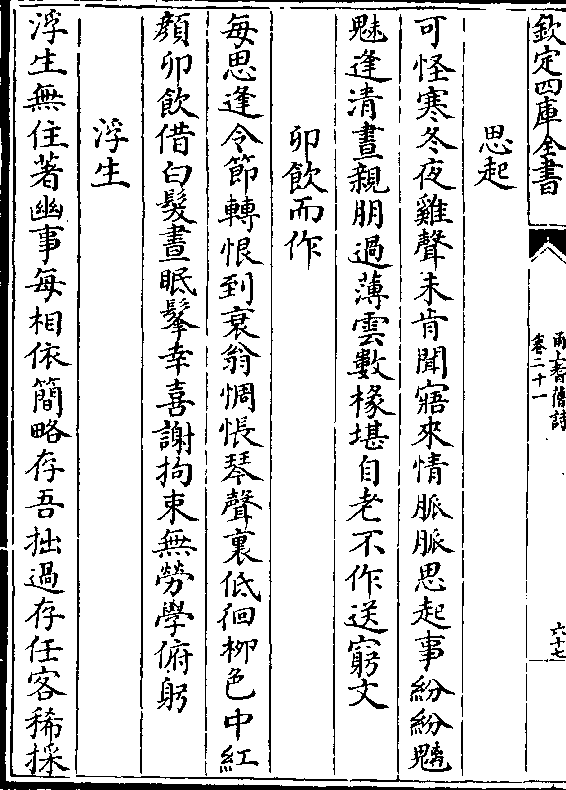 欽定四庫全書
甬上耆舊詩
卷二十一
六十七
思起
可怪寒冬夜雞聲未肯聞寤來情脈脈思起事紛紛魑
魅逢清晝親朋過薄雲數椽堪自老不作送窮文
卯飲而作
每思逢令節轉恨到衰翁惆悵琴聲裏低徊柳色中紅
顔卯飲借白髮晝眠鬔幸喜謝拘束無勞學俯躬
浮生
浮生無住著幽事每相依簡略存吾拙過存任客稀採